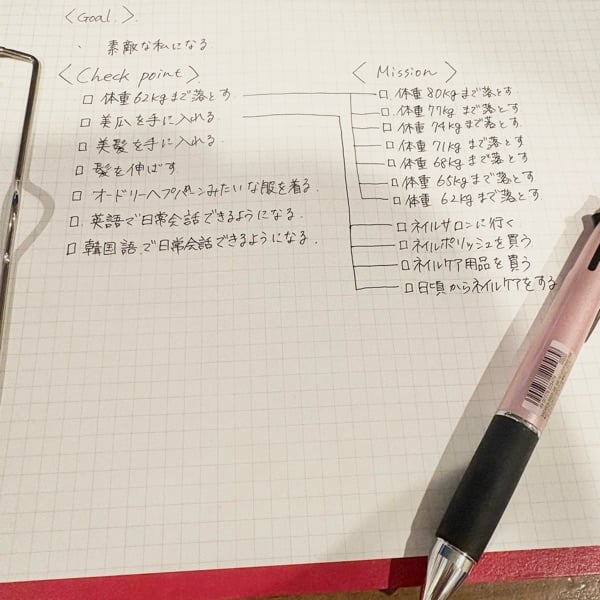 <Goal.>
・ 素敵な私になる
<Check point>
□ 体重62kgまで落とす.
□ 美爪を手に入れる
□ 美髪を手に入れる
□ 髪を伸ばす
□ オードリーヘプバーンみたいな服を着る.
□ 英語で日常会話できるようになる.
□ 韓国語で日常会話できるようになる.
<Mission>
□ 体重80kgまで落とす
□ 体重77kgまで落とす
□ 体重74kgまで落とす
□ 体重71kgまで落とす
□ 体重68kgまで落とす
□ 体重65kgまで落とす
□ 体重62kgまで落とす.
□ネイルサロンに行く
□ネイルポリッシュを買う
□ネイルケア用品を買う
□日頃からネイルケアをする